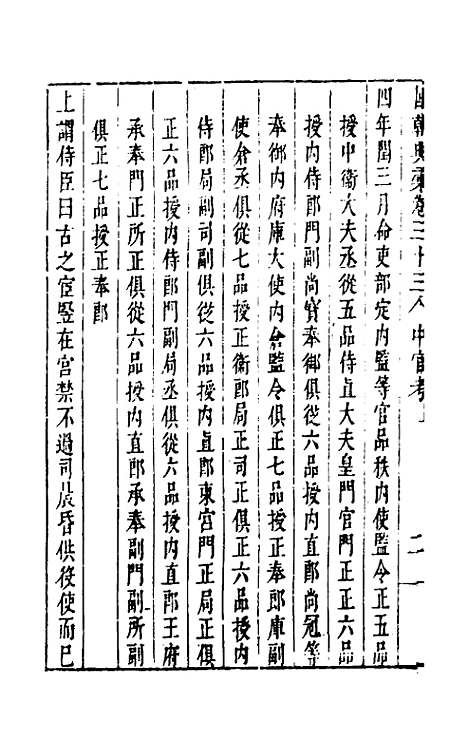 國朝典彙卷三十三 中官考上 二
四年閏三月命吏部定內監等官品秩內使監令正五品
授中衛大夫丞從五品侍直大夫皇門官門正正六品
授內侍郎門副尚寶奉御俱從六品授內直郎尚冠等
奉御內府庫大使內倉監令俱正七品授正奉郎庫副
使倉丞俱從七品授正衛郎局正司正俱正六品授內
侍郎局副司副俱從六品授內直郎東宮門正局正俱
正六品授內侍郎門副局丞俱從六品授內直郎王府
承奉門正所正俱從六品授內直郎承奉副門副所副
俱正七品授正奉郎
上謂侍臣曰古之宦豎在宮禁不過司晨昏供役使而已